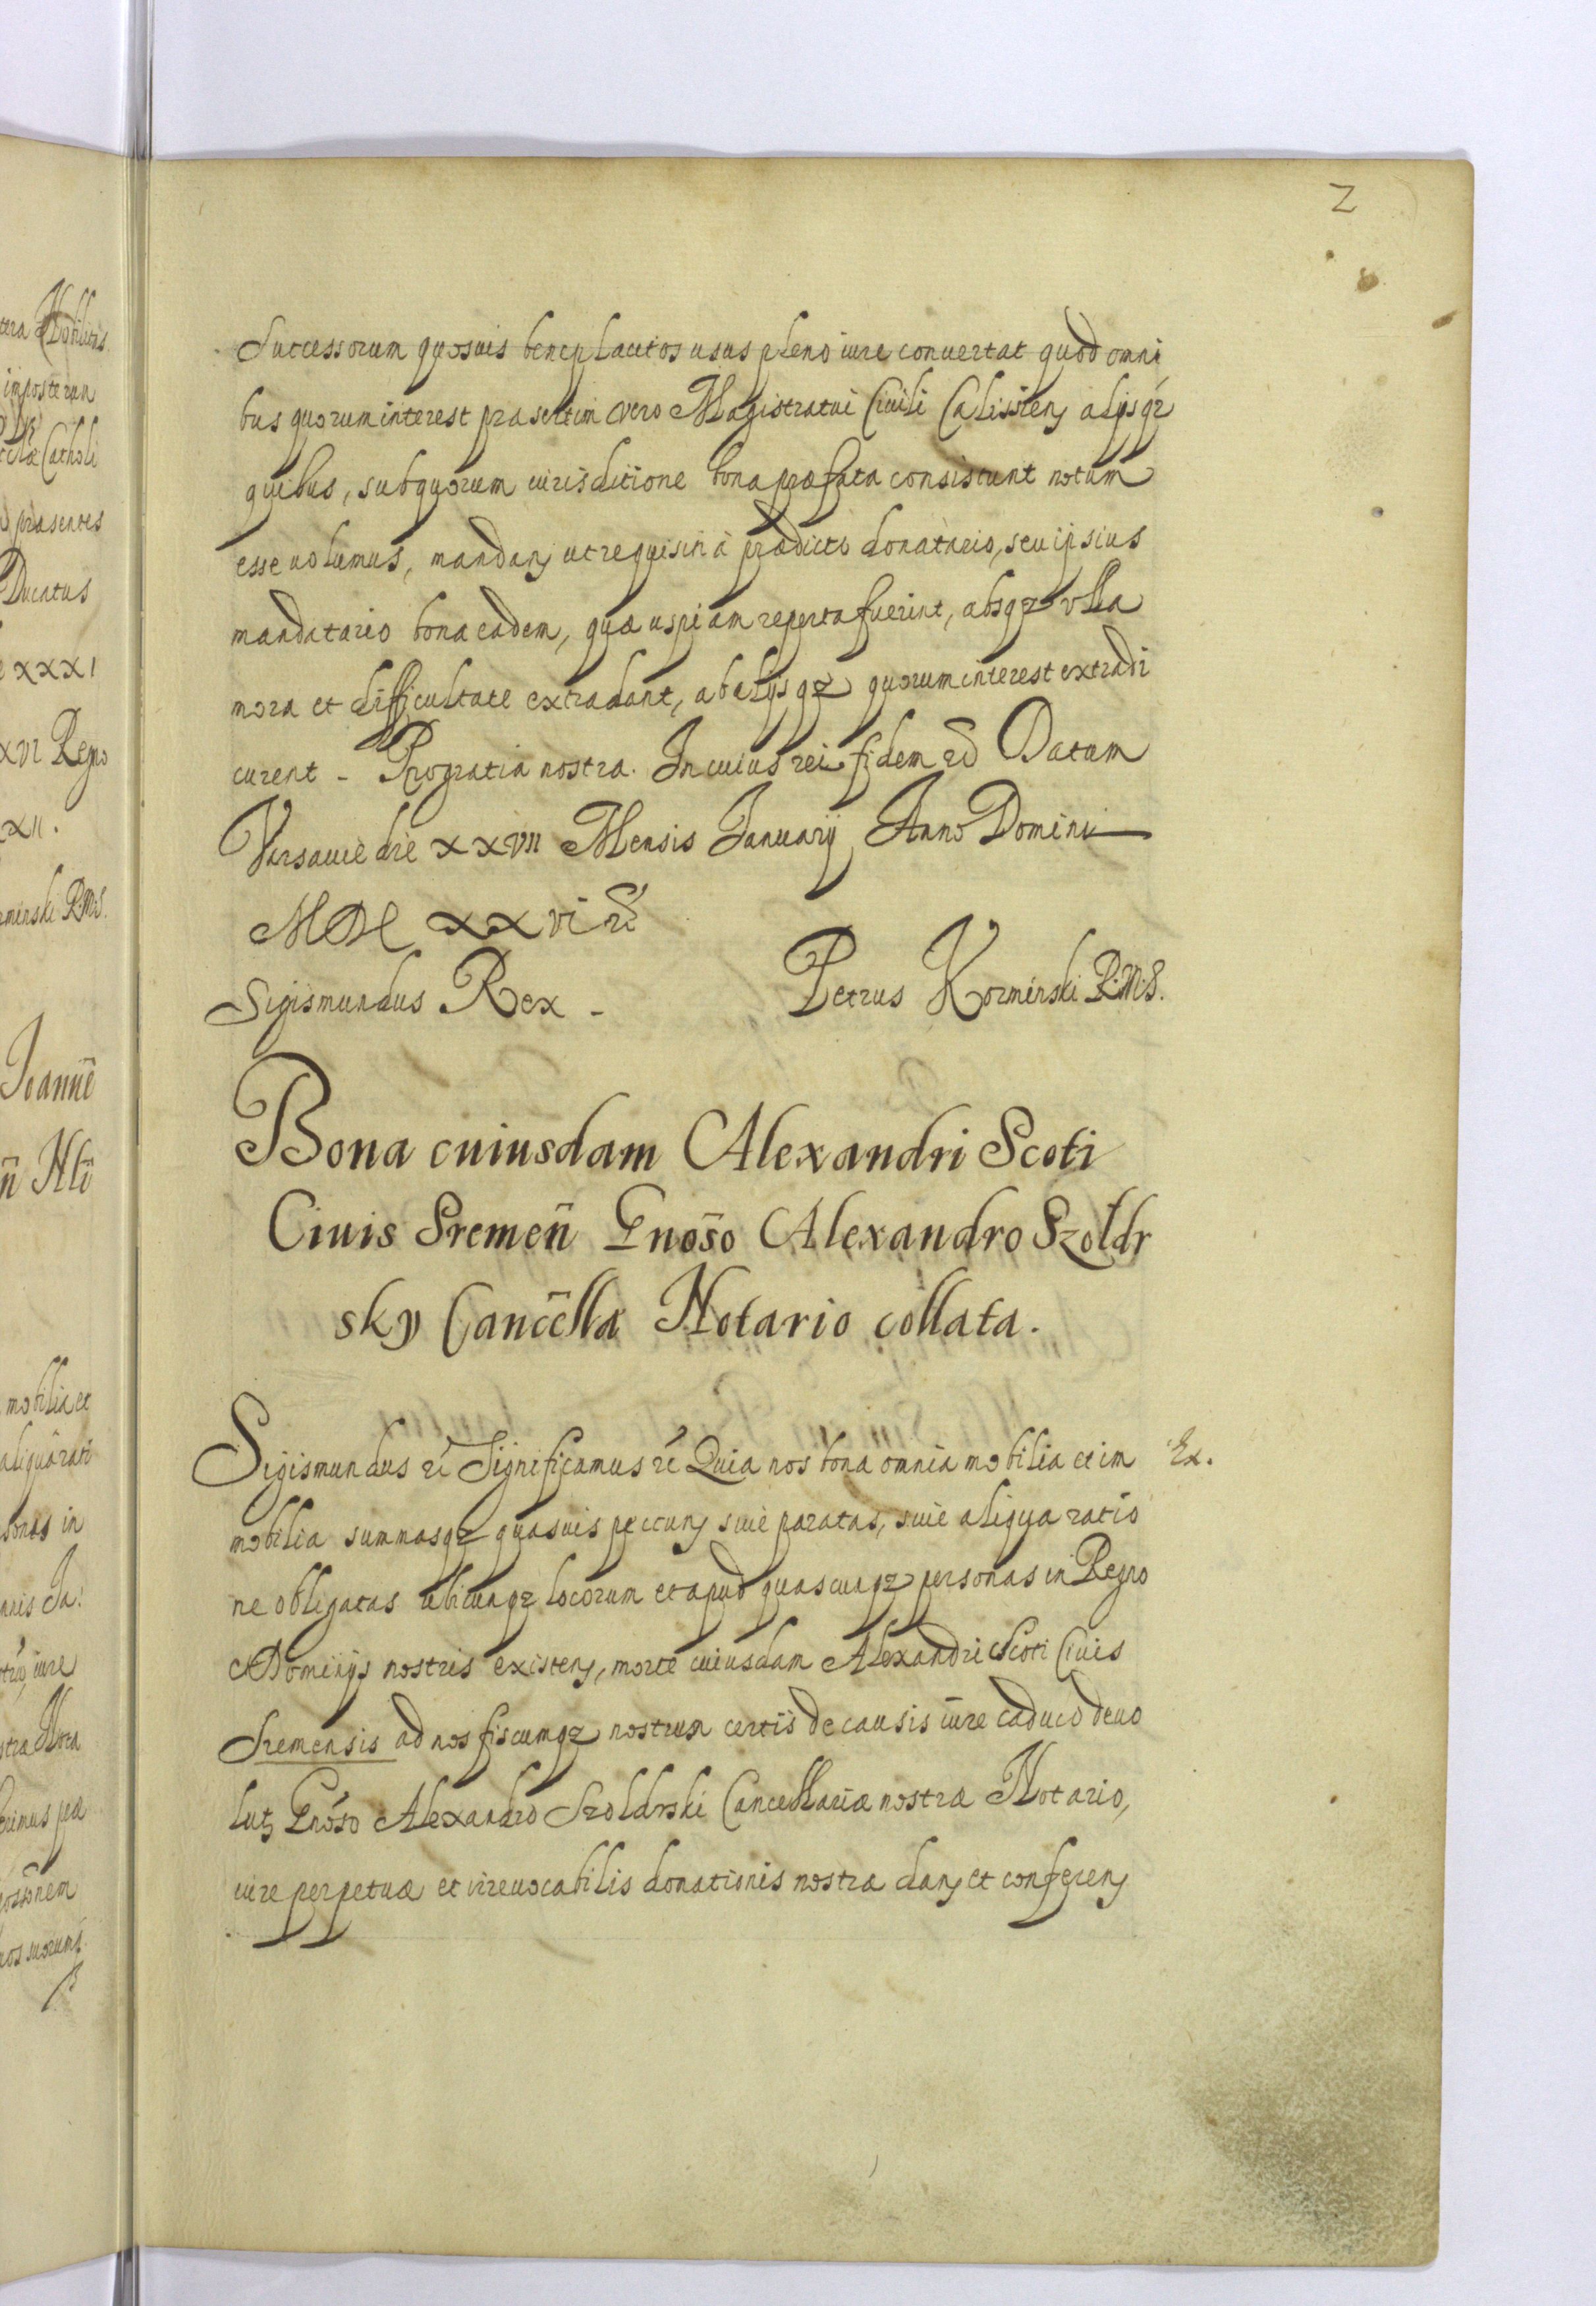 2
Successorum quosuis beneplacitos usus pleno iure conuertat quod omni
bus quorum interest præsertim vero Magistratui Ciuili Calissien̄ alijsqꝫ
quibus, sub quorum iurisditione bona præfata consistunt notum
esse uolumus, mandan̄ ut requisiti à prædicto donatario, seu ipsius
mandatario bona eadem, quæ uspiam reperta fuerint, absqꝫ vlla
mora et difficultate extradant, ab alijsqꝫ quorum interest extradi
curent - Pro gratia nostra. In cuius rei fidem ec̄ Datum
Varsauie die XXVII Mensis Januarij Anno Domini
MDCXXVI ec̄
Sigismundus Rex - Petrus Korminski R.M.S.
Bona cuiusdam Alexandri Scoti
Ciuis Sremeñ Gnoso Alexandro Szoldr
sky Cancella Notario collata.
Sigismundus ec̄ Significamus ec̄ Quia nos bona omnia mobilia et im Ex.
mobilia summasqꝫ quasuis pecun̄ siue paratas, siue aliqua ratio
ne obligatas ubicunqꝫ locorum et apud quascunqꝫ personas in Regno
Dominijs nostris existen̄, morte cuiusdam Alexandri Scoti Ciuis
Sremensis ad nos fiscumqꝫ nostrum certis de causis iure caduco deuo
lut̄ Gnoso Alexandro Szoldrski Cancellariæ nostræ Notario,
iure perpetuæ et irreuocabilis donationis nostræ dan̄ et conferen̄